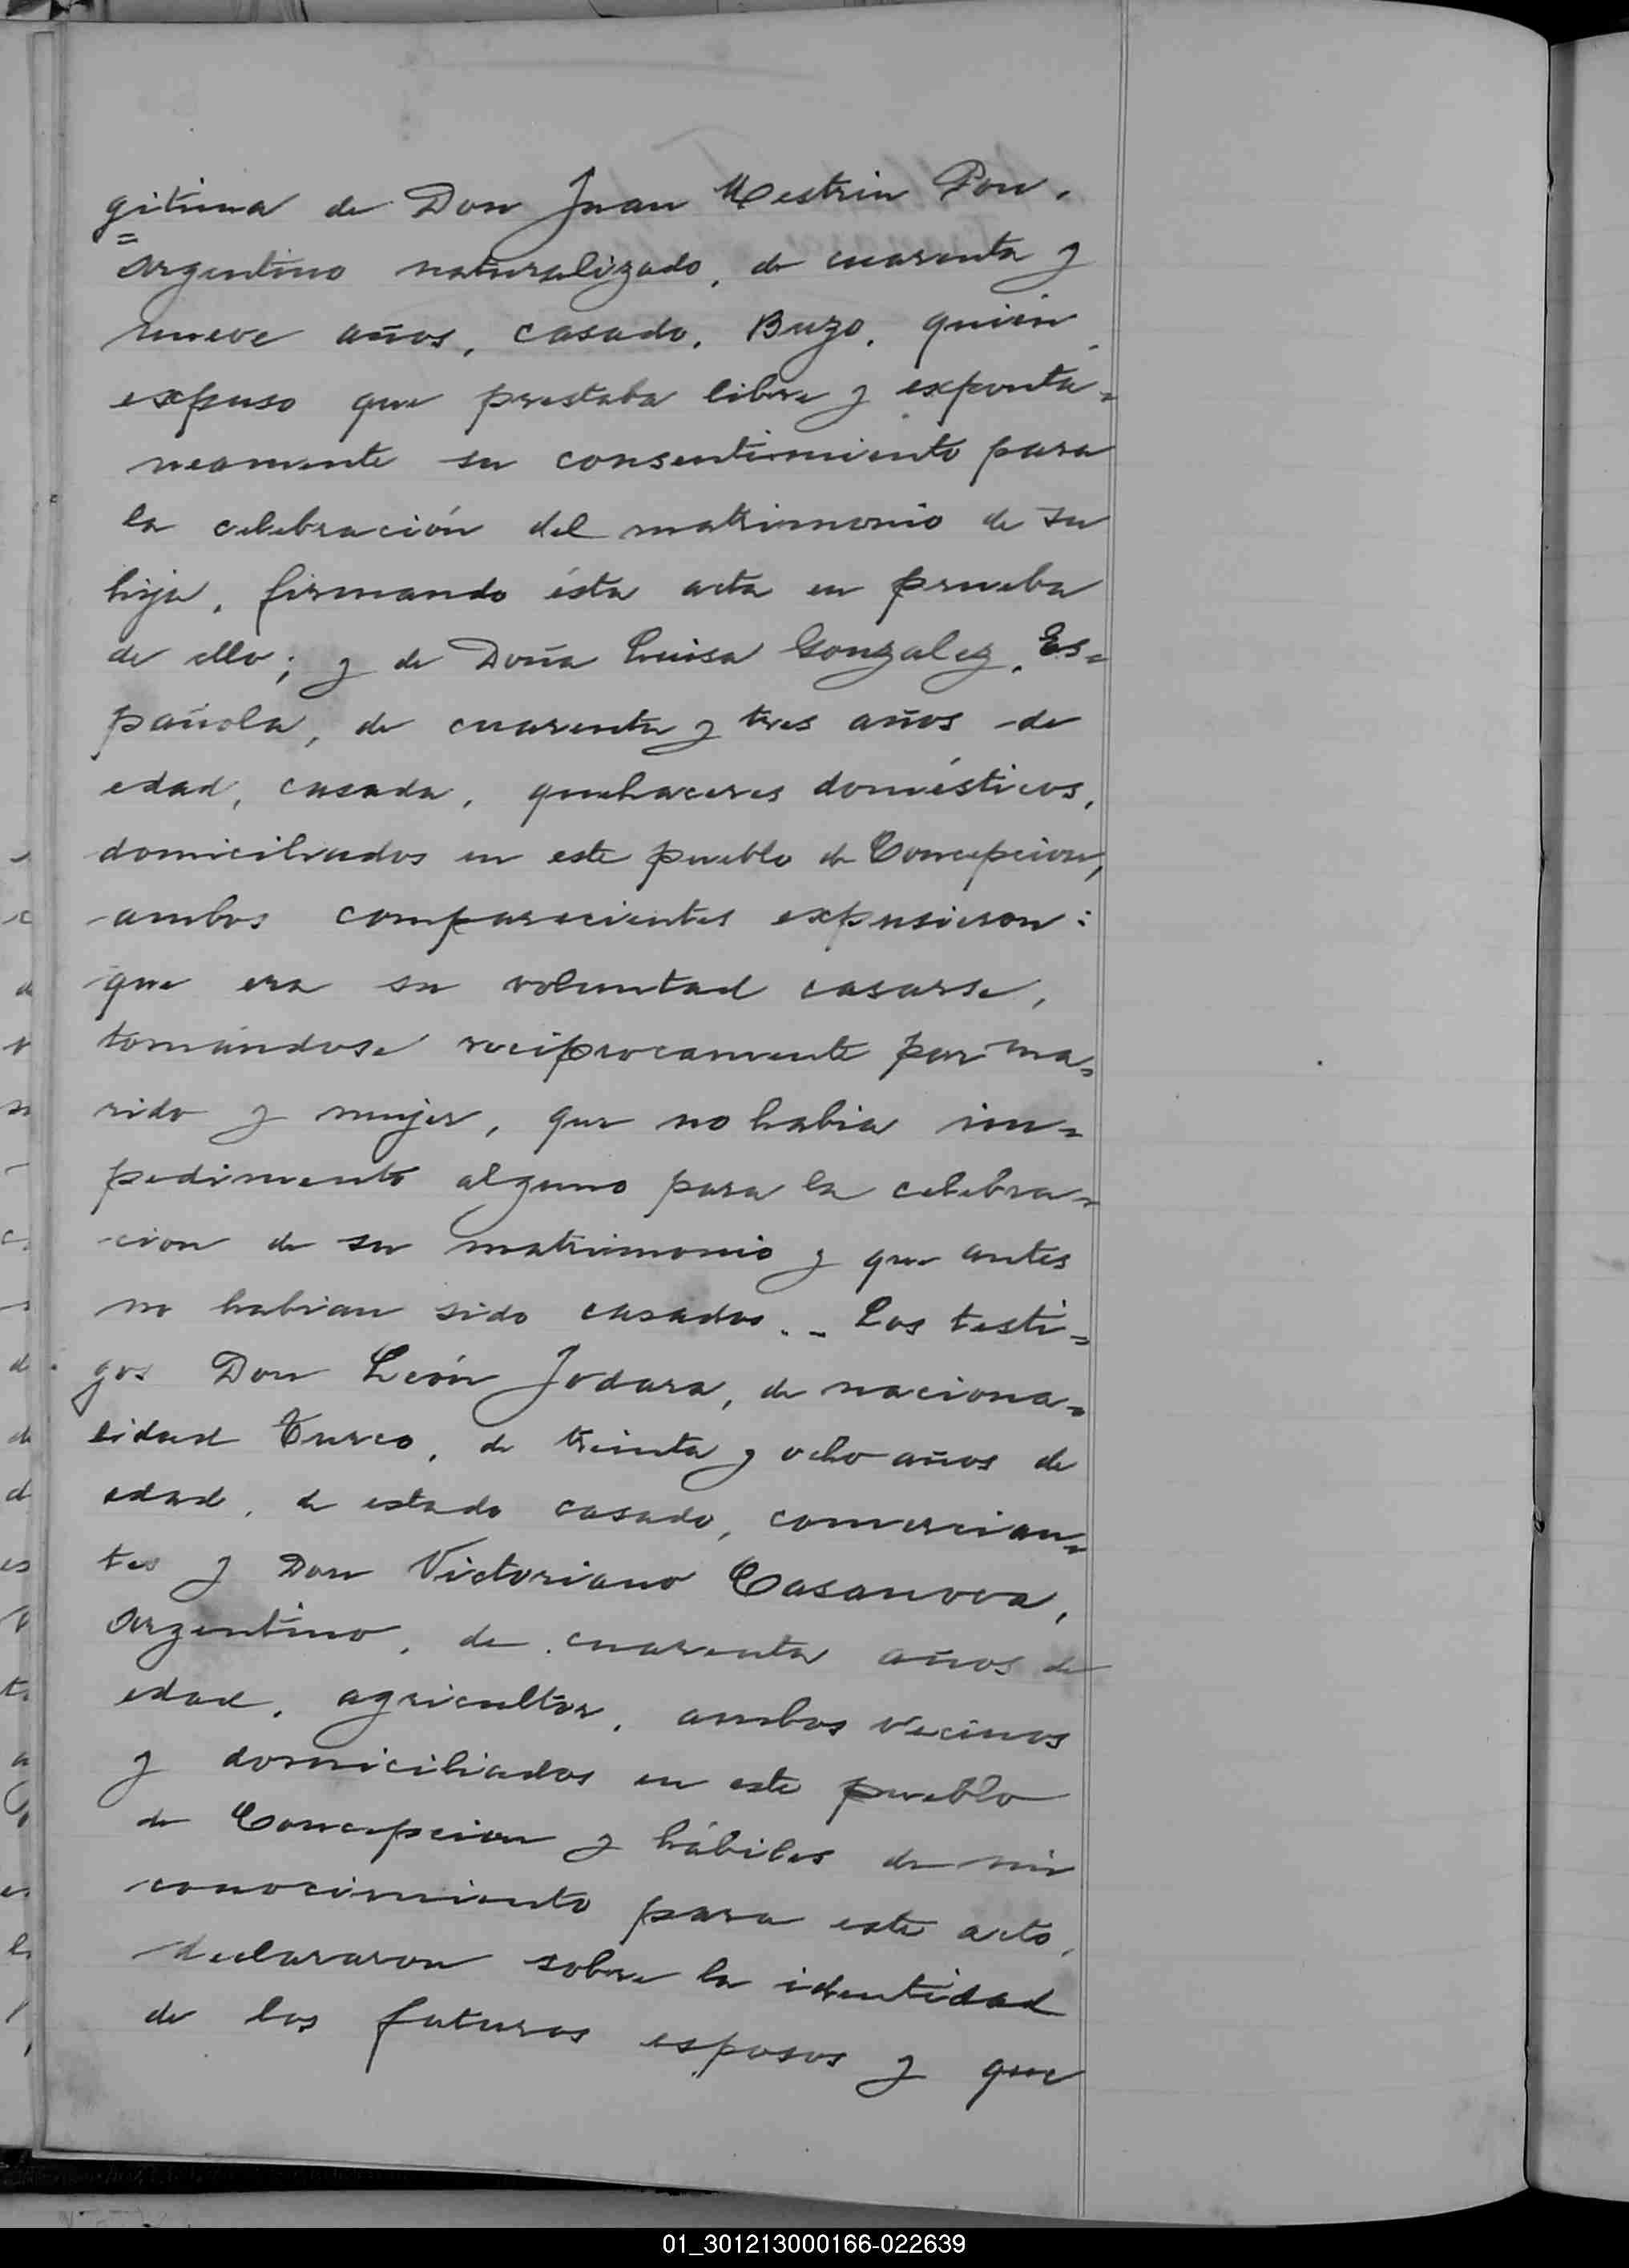 gitima de Don Juan Mestrin Pou,
Argentino naturalizado, de cuarenta y
nueve años, casado, Buzo, quién
expuso que prestaba libre y expontá=
neamente su consentimiento para
la celebración del matrimonio de su
hija, firmando ésta acta en prueba
de ello; y de Doña Luisa Gonzalez, Es=
pañola, de cuarenta y tres años de
edad, casada, quehaceres domésticos,
domiciliados en este pueblo de Concepcion,
ambos comparecientes expusieron:
que era su voluntad casarse,
tomándose reciprocamente por ma=
rido y mujer, que no habia im=
pedimento alguno para la celebra=
cion de su matrimonio y que antes
no habian sido casados.- Los testi=
gos Don León Jodara, de naciona=
lidad Turco, de treinta y ocho años de
edad, de estado casado, comercian=
tes y Don Victoriano Casanova,
Argentino, de cuarenta años de
edad, agricultor, ambos vecinos
y domiciliados en este pueblo
de Concepcion y hábiles de mi
conocimiento para este acto,
declararon sobre la identidad
de los futuros esposos y que
01_301213000166-022639